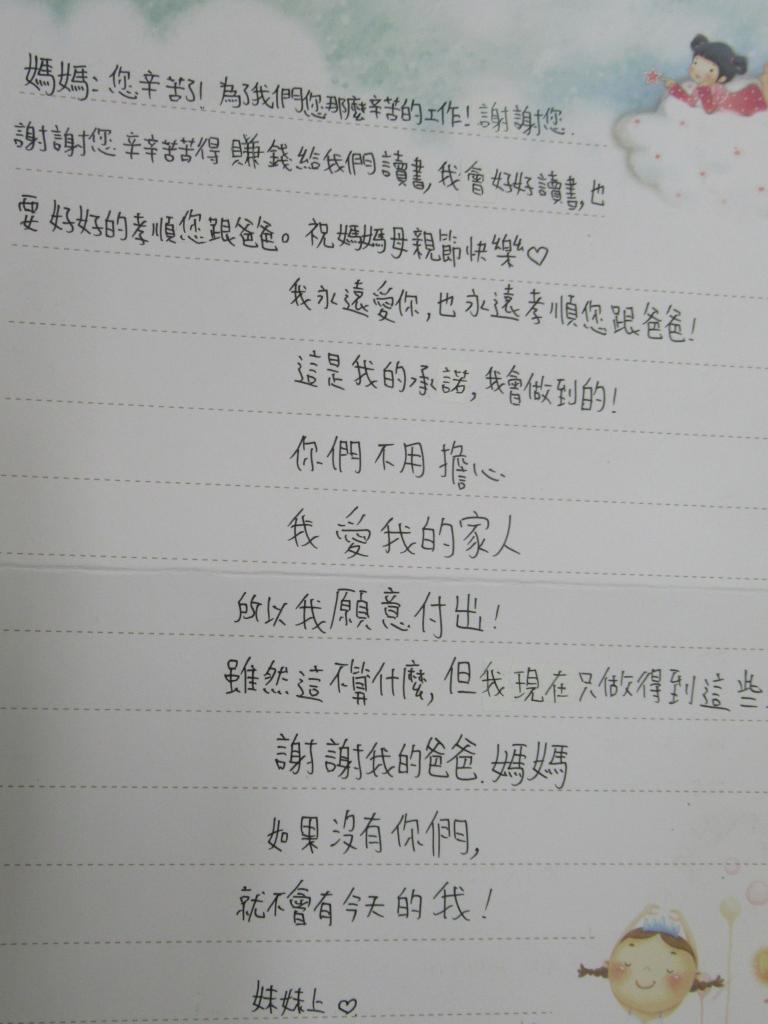 媽媽：您辛苦了！為了我們您那麼辛苦的工作！謝謝您．
謝謝您辛辛苦苦得賺錢給我們讀書，我會好好讀書，也
要好好的孝順您跟爸爸。祝媽媽母親節快樂♡
我永遠愛你，也永遠孝順您跟爸爸！
這是我的承諾，我會做到的！
你們不用擔心
我愛我的家人
所以我願意付出！
雖然這不算什麼，但我現在只做得到這些
謝謝我的爸爸．媽媽
如果沒有你們，
就不會有今天的我！
妹妹上♡